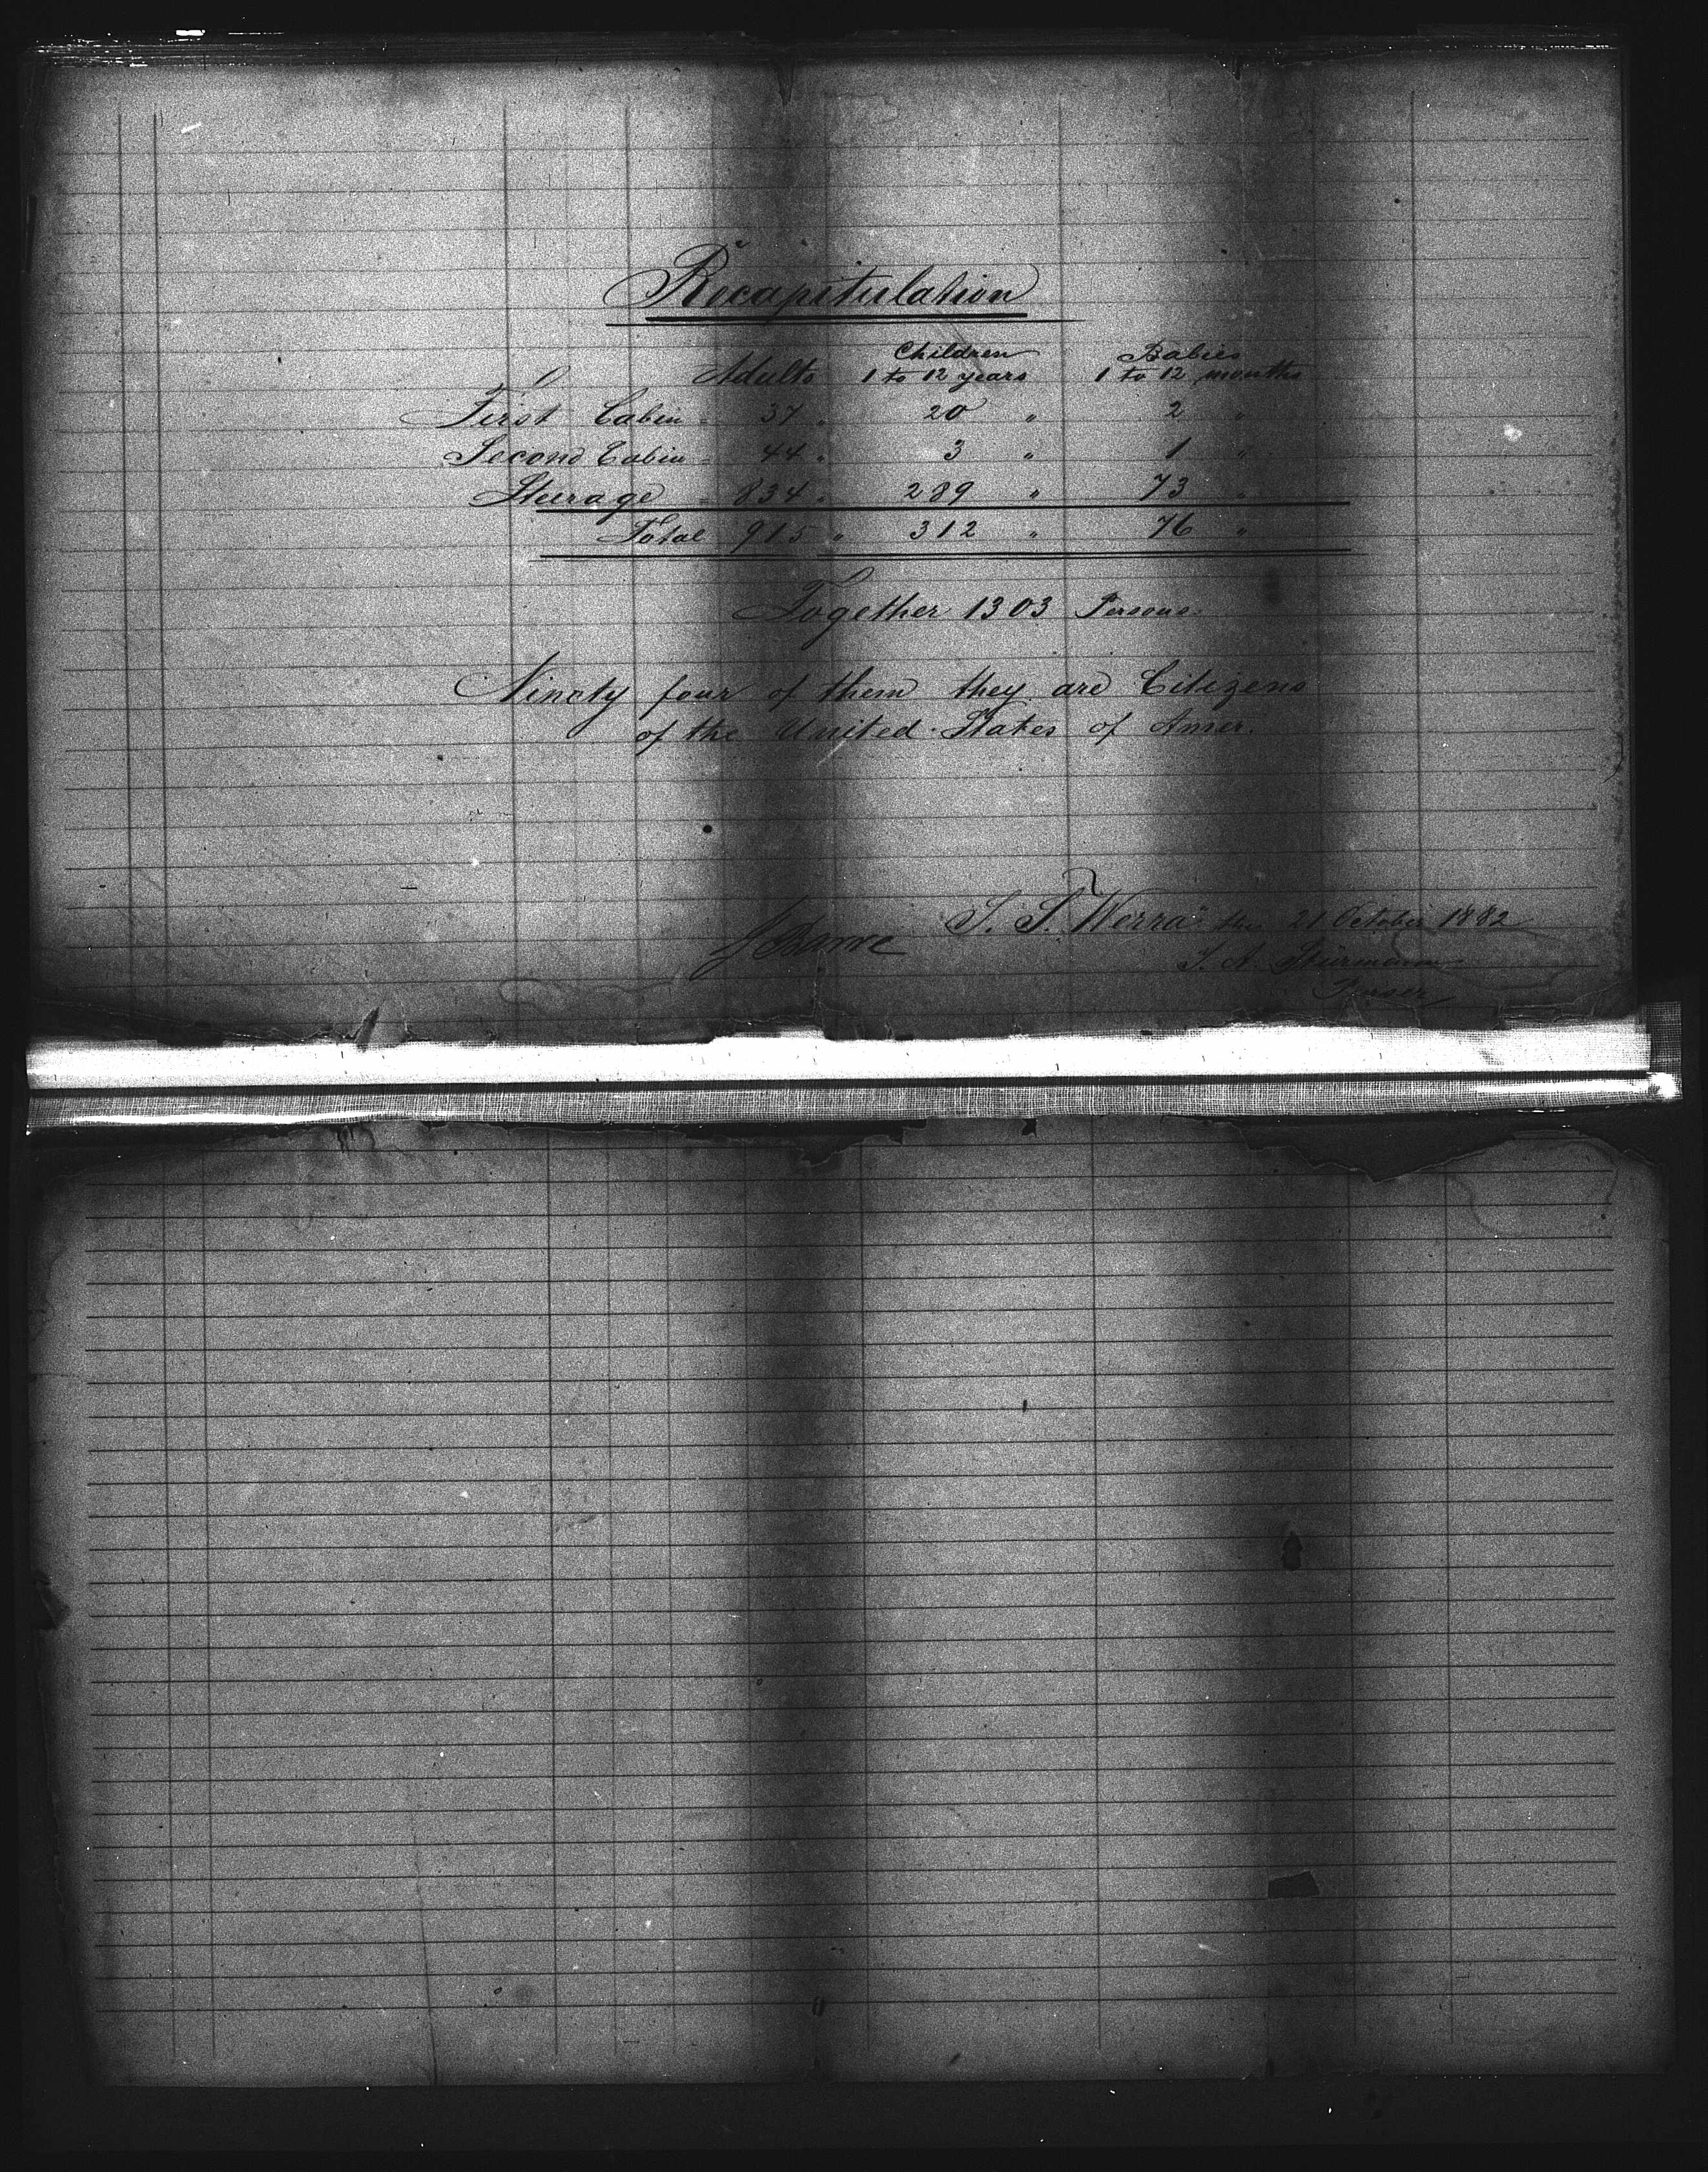 Recapitulation
Children Babies
Adults 1 to 12 years 1 to 12 months
First Cabin = 37 " 20 " 2 "
Second Cabin = 44 " 3 " 1 "
Steerage = 834 " 289 " 73 "
Total 915 " 312 " 76 "
Together 1303 Persons
Ninety four of them they are Citizens
of the United States of Amer.
S. S. "Werra" the 21 October 1882
Purser